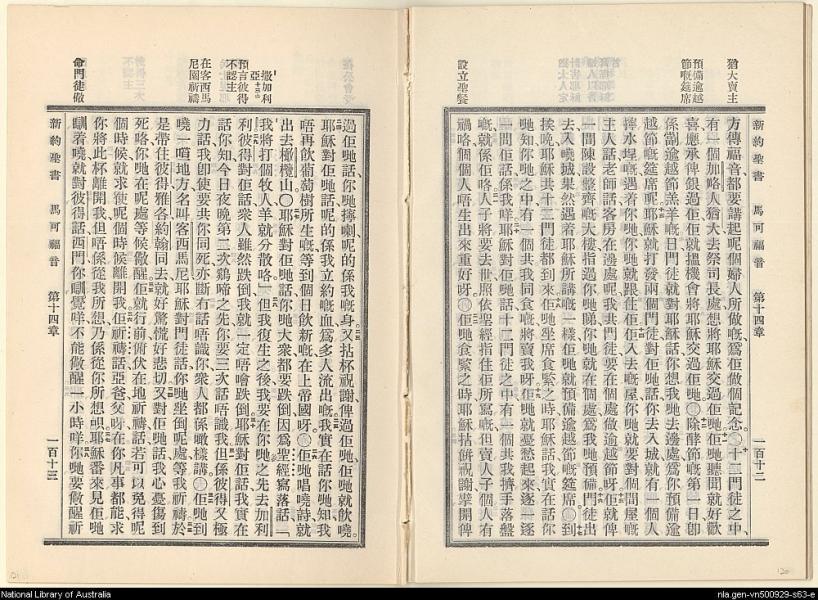 猶大賣主
預備逾越
節嘅筵席
設立聖餐
新約聖書 馬可福音 第十四章 一百十二
方傳福音都要講起呢個婦人所做嘅爲佢做個記念〇十二門徒之中
有一個加略人猶大去祭司長處想將耶穌交過佢哋佢哋聽聞就好歡
喜應承俾銀過佢佢就搵機會將耶穌交過佢哋〇除酵節嘅第一日卽
係劏逾越節羔羊嘅日門徒就對耶穌話你想我哋去邊處爲你預備逾
越節嘅筵席呢耶穌就打發兩個門徒對佢哋話你去入城就有一個人
揸水埕嘅遇着你哋你哋就跟住佢佢入去嘅屋你哋就要對個間屋嘅
主人話老師話客房在邊處呢我共門徒要在個處做逾越節呀佢就俾
一間陳設整齊嘅大樓指過你哋睇你哋就在個處爲我哋預備門徒出
去入曉城果然遇着耶穌所講嘅一樣佢哋就預備逾越節嘅筵席〇到
挨晚耶穌共十二門徒都到來佢哋坐席食緊之時耶穌話我實在話你
哋知你哋之中有一個共我同食嘅將賣我呀佢哋就憂愁起來逐一逐
一問佢話係我咩耶穌對佢哋話十二門徒之中有一個共我擠手落盤
嘅就係佢咯人子將要去世照依聖經指住佢所寫嘅但賣人子個人有
禍咯個個人唔生出來重好呀〇佢哋食緊之時耶穌拈餅祝謝擘開俾
撒加利
亞十三〇
預言彼得
不認主
在客西馬
尼園祈禱
命門徒儆
過佢哋話你哋擰喇呢的係我嘅身又拈杯祝謝俾過佢哋佢哋就飲曉
耶穌對佢哋話呢的係我立約嘅血爲多人流出嘅我實在話你哋知我
唔再飲葡萄樹所生嘅等到個日飲新嘅在上帝國呀〇佢哋唱曉詩就
出去橄欖山〇耶穌對佢哋話你哋大衆都要跌倒因爲聖經寫落話「
我將打個牧人羊就分散咯」但我復生之後我要在你哋之先去加利
利彼得對佢話衆人雖然跌倒我就一定唔噲跌倒耶穌對佢話我實在
話你知今日夜晚第二次鷄啼之先你要三次話唔識我但係彼得又極
力話我卽使要共你同死亦斷冇話唔識你衆人都係噉樣講〇佢哋到
曉一噠地方名叫客西馬尼耶穌對門徒話你哋坐倒呢處等我祈禱於
是帶住彼得雅各約翰同去就好驚慌好悲切又對佢哋話我心憂傷到
死咯你哋在呢處等候儆醒佢就行前俯伏在地祈禱話若可以免得呢
個時候就求使呢個時候離開我佢祈禱話亞爸父呀在你凡事都能求
你將此杯離開我但唔係從我所想乃係從你所想〇耶穌番來見佢哋
瞓着曉就對彼得話西門你瞓覺咩不能儆醒一小時咩你哋要儆醒祈
新約聖書 馬可福音 第十四章 一百十三
National Library of Australia
nla.gen-vn500929-s63-e